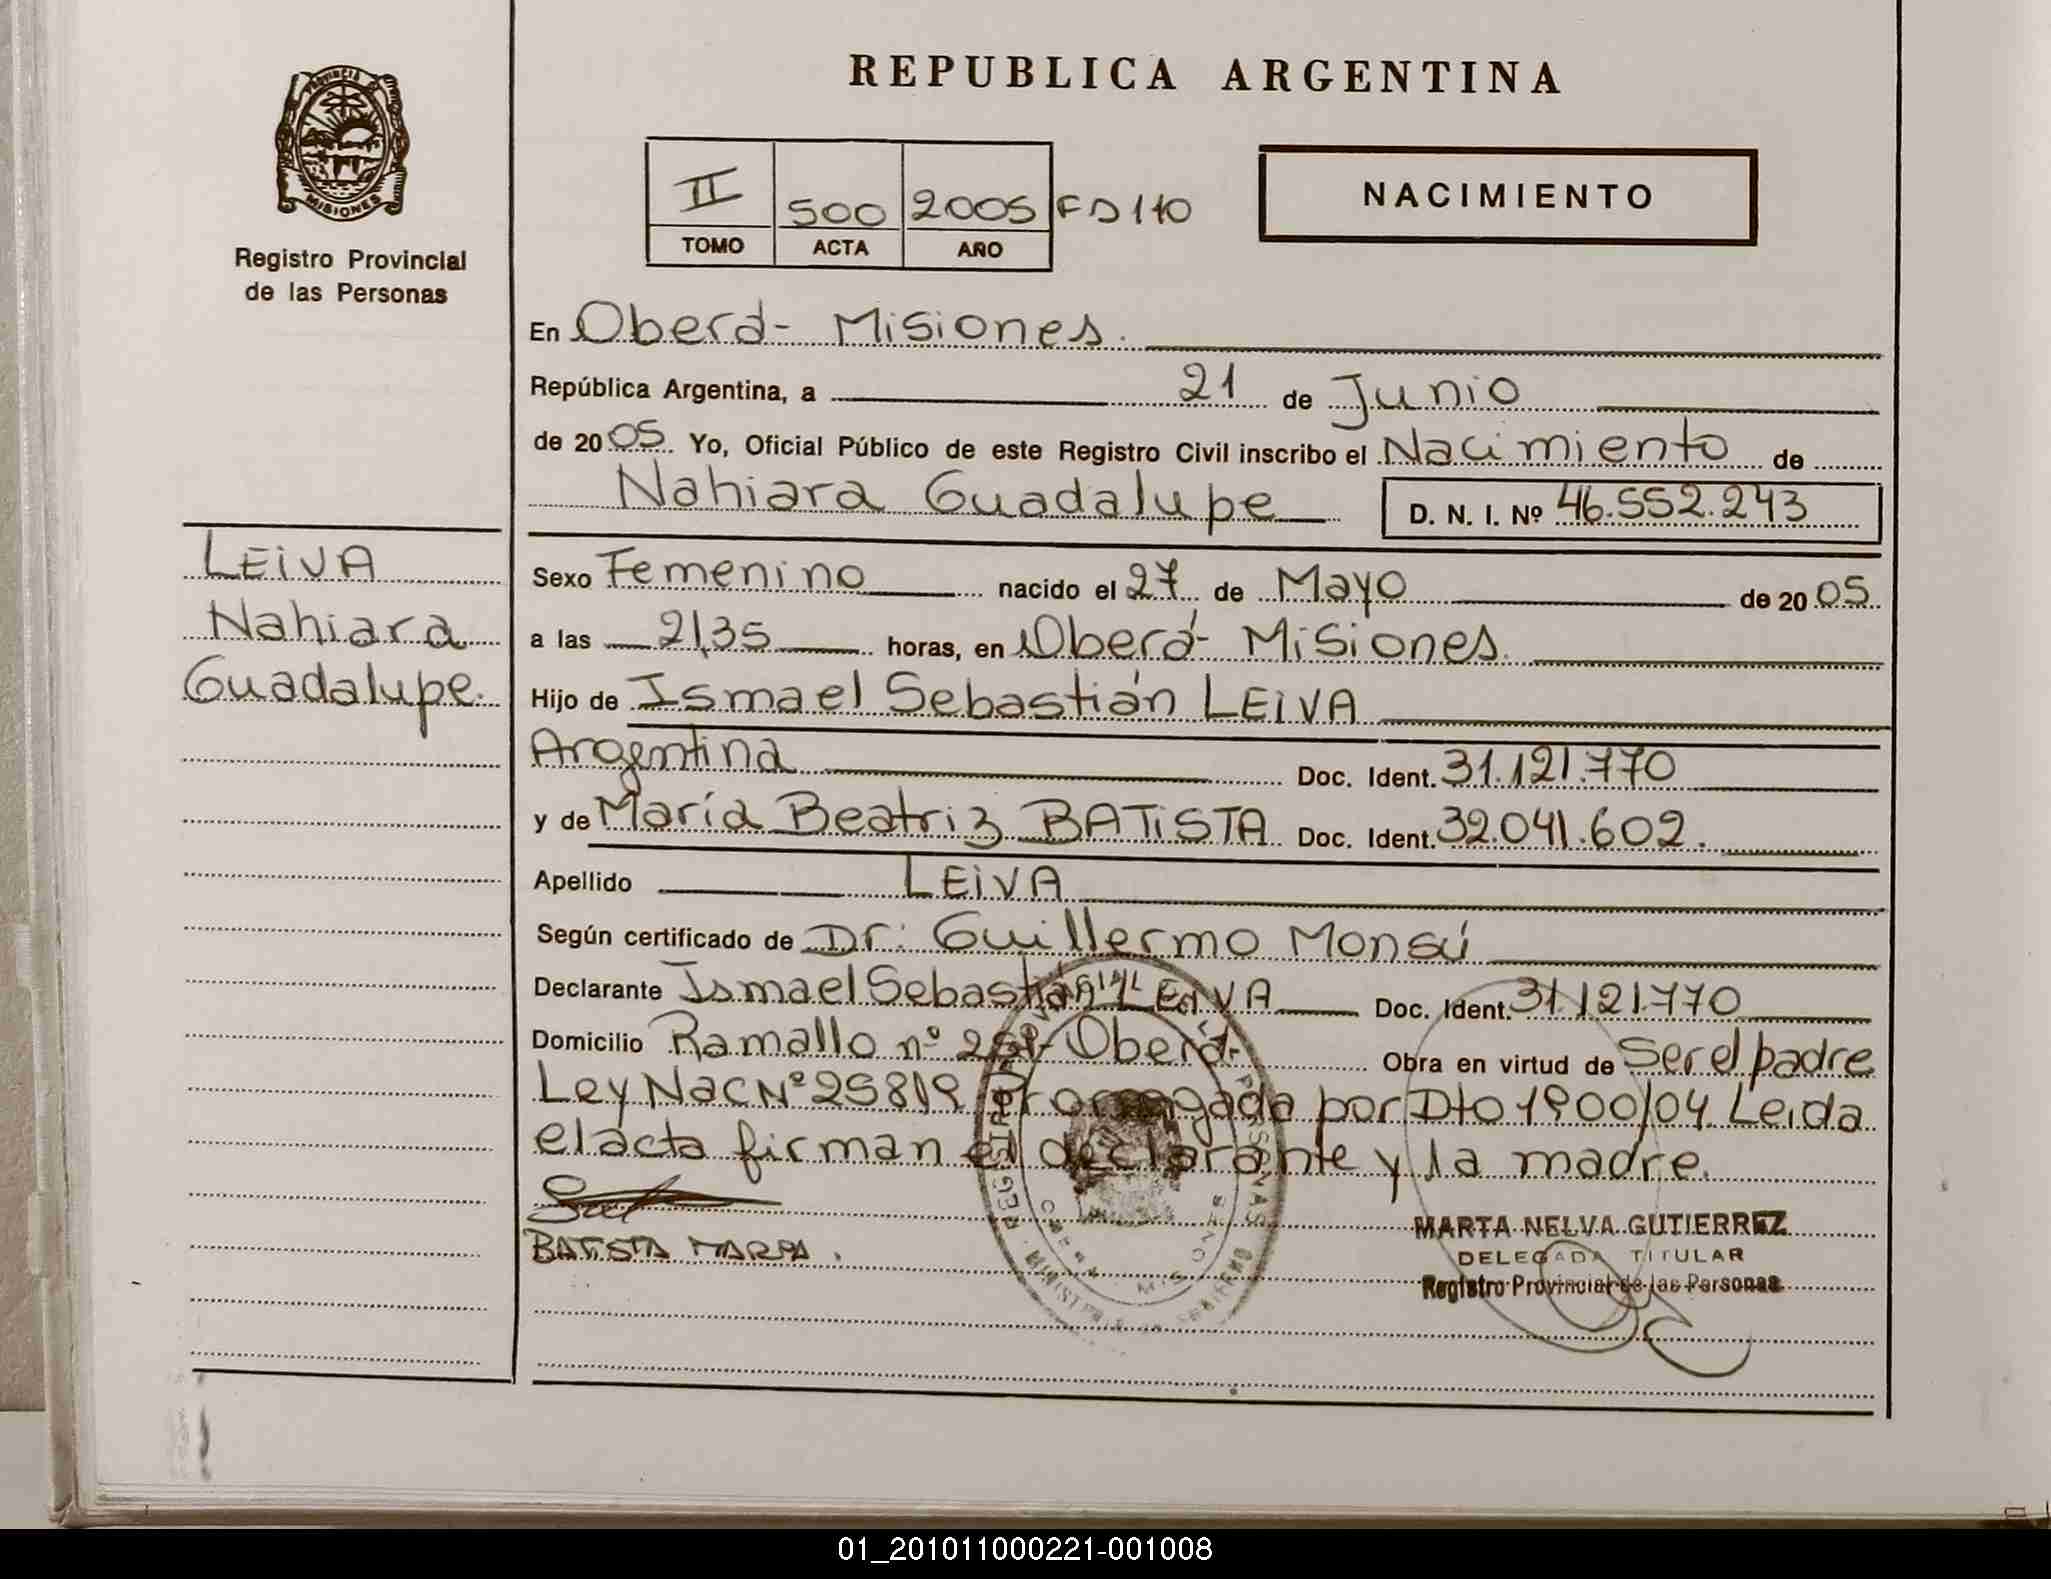 REPUBLICA ARGENTINA
PROVINCIA
MISIONES
Registro Provincial
de las Personas
II 500 2005 FD 110
TOMO ACTA AÑO
NACIMIENTO
En Oberá- Misiones.
República Argentina, a 21 de Junio
de 2005. Yo, Oficial Público de este Registro Civil inscribo el Nacimiento de
Nahiara Guadalupe D. N. I. Nº 46.552.243
LEIVA
Nahiara
Guadalupe.
Sexo Femenino nacido el 27 de Mayo de 2005
a las 21,35 horas, en Oberá- Misiones.
Hijo de Ismael Sebastián LEIVA
Argentina Doc. Ident. 31.121.770
y de María Beatriz BATISTA Doc. Ident. 32.041.602.
Apellido LEIVA
Según certificado de Dr. Guillermo Monsú
Declarante Ismael Sebastián LEIVA Doc. Ident. 31.121.770
Domicilio Ramallo nº Oberá- Obra en virtud de Ser el padre
Ley Nac Nº 25819 Prorrogada por Dto 1900/04. Leida
el acta firman el declarante y la madre.
BATISTA MARIA.
MARTA NELVA GUTIERREZ
DELEGADA TITULAR
Registro Provincial de las Personas
01_201011000221-001008